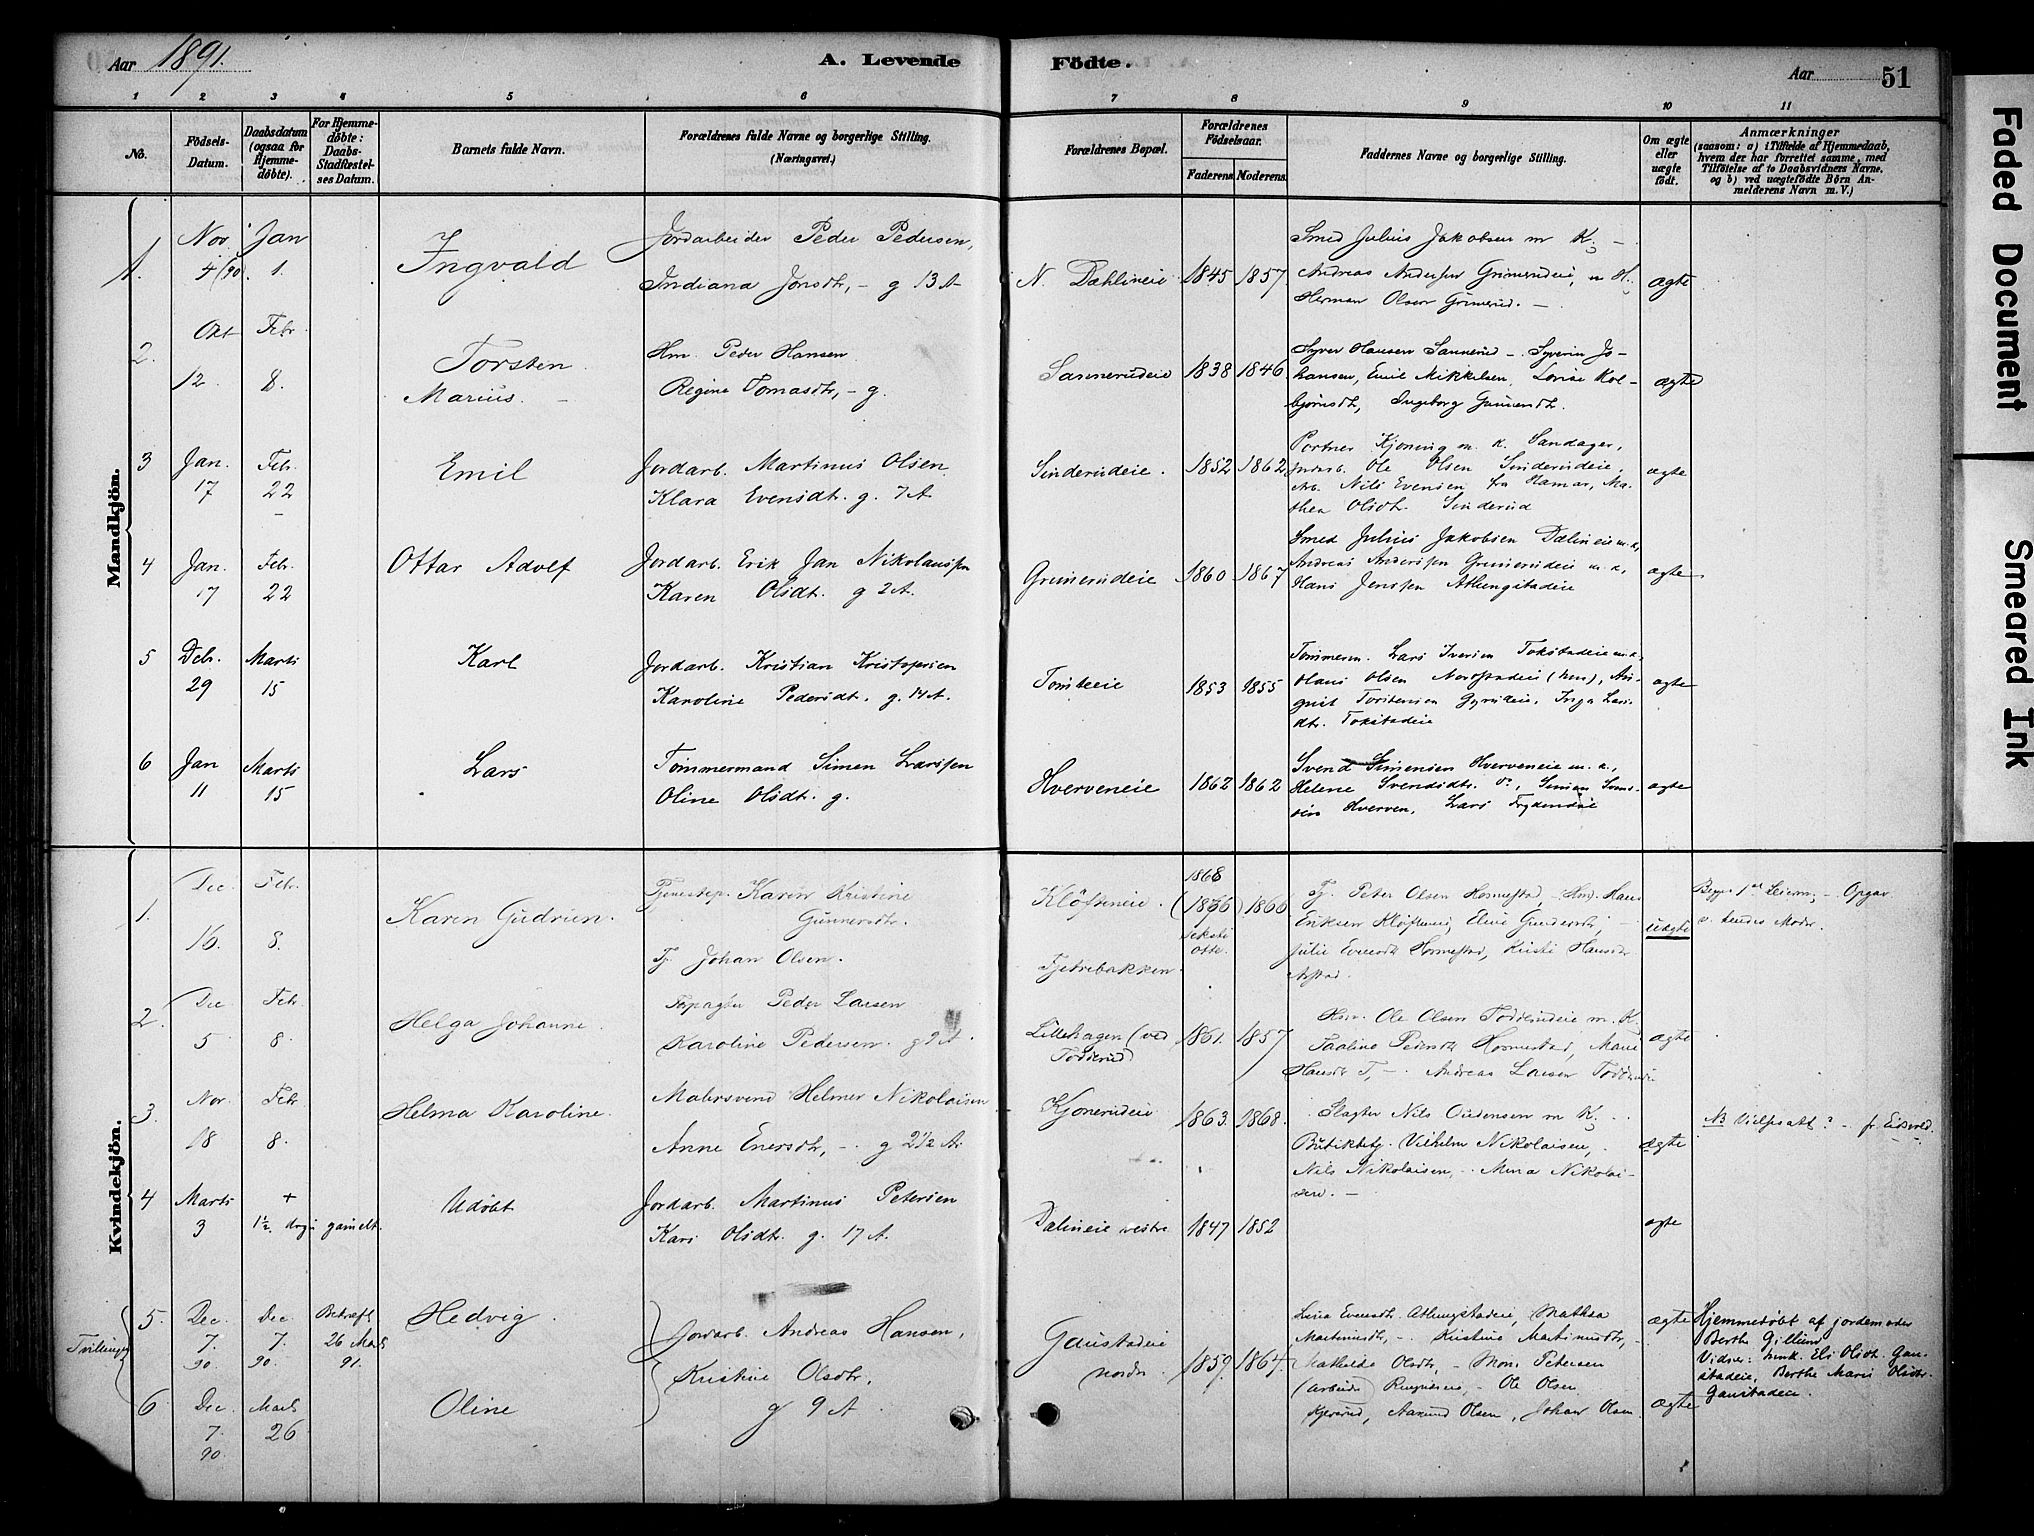 Aar 1891.
A. Levende Födte.
Aar 51
1 2 3 4 5 6 7 8 9 10 11
No.
Födsels-Datum.
Daabsdatum (ogsaa for Hjemme-döbte).
For Hjemme-döbte: Daabs-Stadfæstel-ses Datum.
Barnets fulde Navn.
Forældrenes fulde Navne og borgerlige Stilling. (Næringsvei.)
Forældrenes Bopæl.
Forældrenes Födselsaar.
Faderens. Moderens.
Faddernes Navne og borgerlige Stilling.
Om ægte eller uægte födt.
Anmærkninger
(saasom: a) i Tilfælde af Hjemmedaab, hvem der har forrettet samme, med Tilföielse af to Daabsvidners Navne. og b) ved uægtefödte Börn An-melderens Navn m. V.)
Mandkjön.
1. Nov 4 (90). Jan 1. Ingvald
Jordarbeider Peder Pedersen,
Indiana Jonsdtr, – g 13 A
N. Dæhlineie 1845 1857.
Smed Julius Jakobsen m K; –
Andreas Andersen Grimerudeie, m H.
Herman Olsen Grimerud. –
ægte
2. Okt 12. Febr. 8. Torsten
Marius. –
Hm. Peder Hansen
Regine Tomasdtr, – g.
Sannerudeie 1838 1846.
Syver Hansen Sannerud –. Syverin Jo-
hansen, Emil Mikkelsen, Lovise Kol-
bjørnsdtr, Ingeborg Gunnersdtr.
ægte
3 Jan. 17 Febr. 22 Emil
Jordarb. Martinus Olsen
Klara Evensdtr. g. 7 A.
Sinderudeie. 1852 1862
Portner Kjoning m. k. Sandager,
Jordarb. Ole Olsen Sinderudeie,
Arb. Nils Evensen fra Hamar, Ma-
thea Olsdtr. Sinderud
ægte
4 Jan. 17 Febr. 22 Ottar Adolf
Jordarb. Erik Jan Nikolaussen
Karen Olsdt. g 2 A.
Grimerudeie 1860 1867
Smed Julius Jakobsen Dælineie m. k,
Andreas Anderssen Grimerudeie m. k,
Hans Jenssen Athungstadeie
ægte
5 Debr. 29 Marts 15 Karl
Jordarb. Kristian Kristopersen
Karoline Pedersdt. g. 14 A.
Tomteeie 1853 1855
Tømmerm. Lars Iversen Tokstadeie m. k,
Olaus Olsen Nordstadeie (hm), Au-
gust Torstensen Gyrideie, Inga Lars-
dtr. Tokstadeie
ægte
6 Jan 11 Marts 15 Lars
Tømmermand Simen Larssen
Oline Olsdt. g.
Hverveneie 1862 1862
Svend Simensen Hverveneie m. k.,
Helene Svendsdt. do, Simen Svend-
sen Hverven, Lars Frydendeie
ægte
Kvindekjön.
1. Dec. 16. Febr. 8. Karen Gudrun.
Tjenestep. Karen Kristine
Gunnersdtr.
Tj. Johan Olsen.
Kløfteneie.
Tjetrebakken.
1868
(1866) 1866
seksti
otte.
Tj. Peter Olsen Hosmestad, Hm. Hans
Eriksen Kløfteneie, Eline Gundersdtr, –
Julie Evensdtr Hosmestad, Kristi Hansdtr
uægte
Begges 1ste Leierm; – Opgav
v. hendes Moder.
2. Dec 5 Febr 8. Helga Johanne.
Forpagter Peder Larsen
Karoline Pedersen. g 9 A.
Lillehagen (ved
Fodderud) 1861. 1857
Hm. Ole Olsen Fodderudeie m. K.
Paaline Pedersdtr Hosmestad, Marie
Hansdtr F, –. Andreas Larsen Fodderud
ægte
3. Nov. 18 Febr 8. Helma Karoline.
Malersvend Helmer Nikolaisen
Anne Enersdtr, –. g 2½ A.
Kjonerudeie 1863. 1868.
Slagter Nils Audensen m K;
Butikbetj. Vilhelm Nikolaisen,
Nils Nikolaisen, –. Mina Nikolai-
sen. –
ægte
NB Vielsesatt? – fr. Eidsvold.
4 Marts 3 + 1½ dogn gamelt. Udøbt
Jordarb. Martinus Petersen
Kari Olsdtr. g. 17 A.
Dælineie vestre 1847 1852
ægte
Tvillinger
5. Dec. 7. 90. Dec. 7. 90. Bekræft. 26 Mars 91. Hedvig.
Jordarb. Andreas Hansen,
Kristine Olsdtr,
g 9 A.
Gaustadeie
nordr 1859. 1864.
Lina Evensdtr Athungstadeie, Mathea
Martinusdtr, –. Kristine Martinusdtr, –
Mathilde Olsdtr, – Mons Petersen
(Arbeider) –. Ole Olsen
Kjeverud, Aamund Olsen, Johan Olsen
ægte
Hjemmedøbt af jordemoder
Berthe Gillund
Vidner: Enk. Eli Olsdt. Gau-
stadeie, Berthe Marie Olsdtr.
Gaustadeie.
6 Dec. 7. 90. Marts 26 Oline
ægte
Faded Document
Smeared Ink